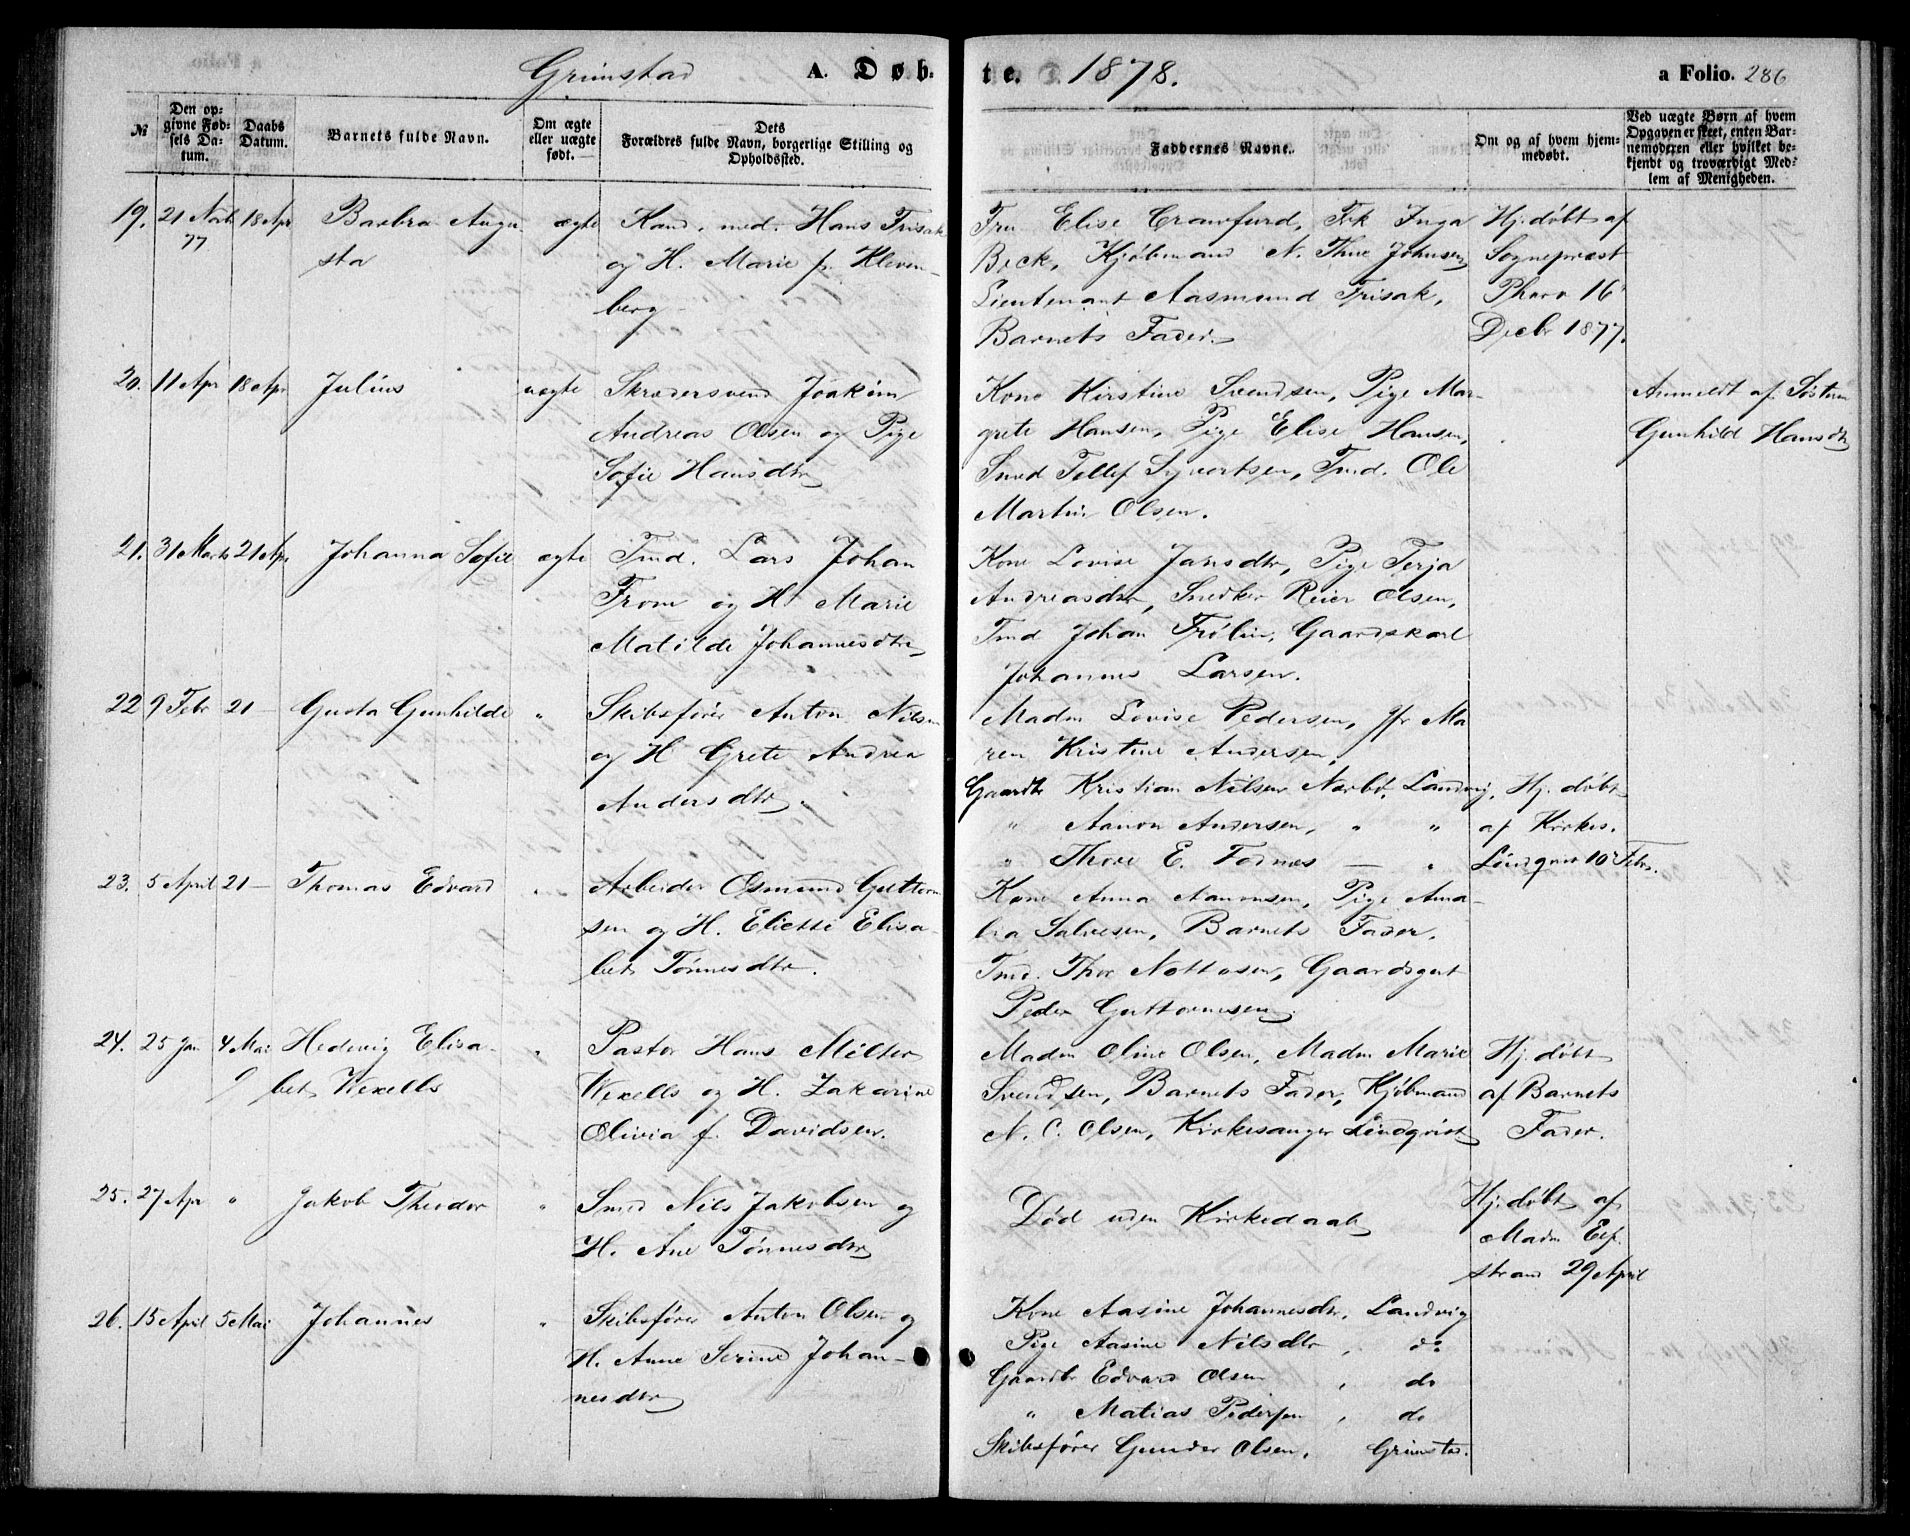 Grimstad A. Døbte. 1878. a Folio. 286
№
Den opgivne Fødsels Datum.
Daabs Datum.
Barnets fulde Navn.
Om ægte eller uægte født.
Dets Forældres fulde Navn, borgerlige Stilling og Opholdssted.
Faddernes Navne.
Om og af hvem hjemmedøbt.
Ved uægte Børn af hvem Opgaven er skeet, enten Barnemoderen eller hvilket bekjendt og troværdigt Medlem af Menigheden.
19. 21 Novb 18 Apr Barbra Augu- ægte Kand. med. Hans Frisak
77 sta og H. Marie f. Kleven-
berg
Fru Elise Crawfurd, Frk Inga Hj. døbt af
Beck, Kjøbmand N. Thue Johnsen, Sognepræst
Lieutenant Aasmund Frisak, Pharo 16
Barnets Fader. Decbr 1877.
20. 11 Apr 18 Apr Julius uægte Skrædersvend Joakim
Andreas Olsen og Pige
Sofie Hansdtr
Kone Kirstine Svendsen, Pige Mar- Anmeldt af Søsteren
grete Hansen, Pige Elise Hansen, Gunhild Hansdtr
Smed Tellef Syvertsen, Tmd. Ole
Martin Olsen.
21. 31 Marts 21 Apr Johanna Sofie ægte Tmd. Lars Johan
From og H. Marie
Matilde Johannesdtr
Kone Lovise Jansdtr, Pige Terja
Andreasdtr, Snedker Reier Olsen,
Tmd Johan Frölin, Gaardskarl
Johannes Larsen.
22 9 Febr 21 — Gusta Gunhilde " Skibsfører Anton Nilsen
og H. Grete Andrea
Andersdtr.
Madm Lovise Pedersen, Jfr Ma
ren Kristine Andersen,
Gaardbr Kristian Nilsen Nærbø, Landvig, Hj. døbt
" Aanon Andersen, " " af Kirkes.
" Thore E. Fodnæs — " Lindqvist 10 Febr.
23. 5 April 21 — Thomas Edvard " Arbeider Osmund Guttorm
sen og H. Eliette Elisa-
bet Tønnesdtr.
Kone Anna Aanonsen, Pige Ama-
lia Salvesen, Barnets Fader,
Tmd. Thor Nottosen, Gaardsgut
Peder Guttormsen.
24. 25 Jan 4 Mai Hedevig Elisa- " Pastor Hans Milter
bet Wexells Wexells og H. Zakarine
Olivia f. Davidsen.
Madm Oline Olsen, Madm Marie Hj. døbt
Svendsen, Barnets Fader, Kjøbmand af Barnets
N. C. Olsen, Kirkesanger Lindqvist Fader.
25. 27 Apr " Jakob Theodor " Smed Nils Jakobsen og
H. Ane Tønnesdtr
Død uden Kirkedaab
Hj. døbt af
Madm Eef-
strand 29 April
26. 15 April 5 Mai Johannes " Skibsfører Anton Olsen og
H. Anne Serine Johan-
nesdtr
Kone Aasine Johannesdtr, Landvig
Pige Aasine Nilsdtr, do
Gaardbr Edvard Olsen , do
" Matias Pedersen , do
Skibsfører Gunder Olsen, Grimstad.